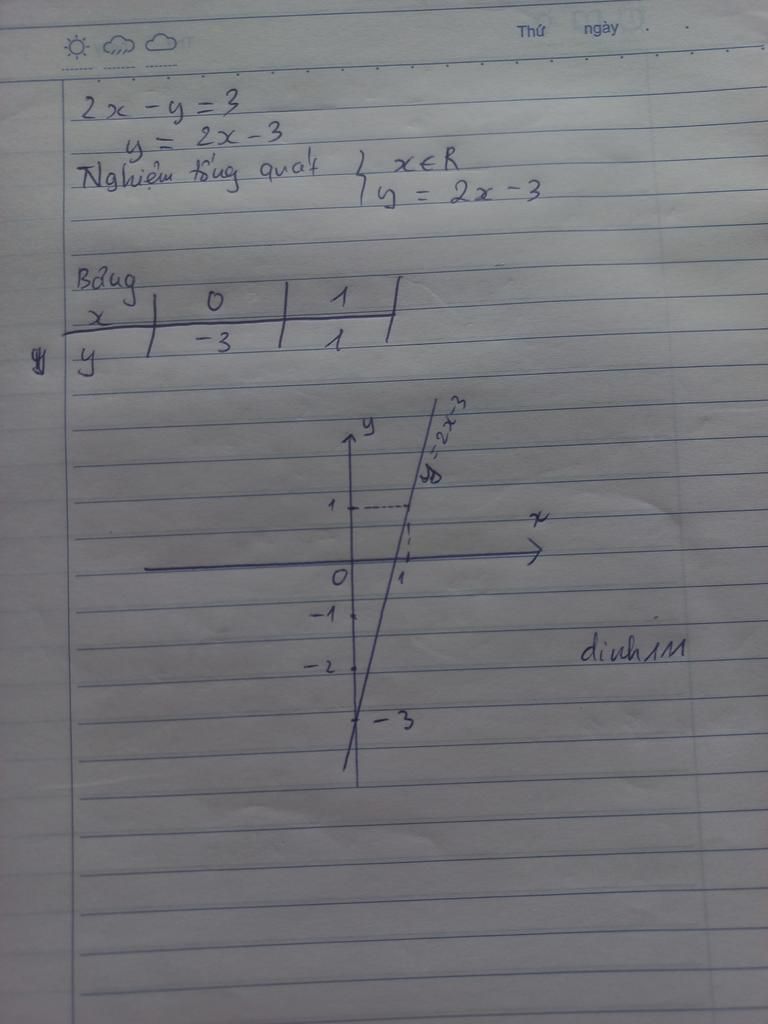 Thứ ngày . .
2x - y = 3
y = 2x - 3
Nghiệm tổng quát { x ∈ R
y = 2x - 3
Bảng
x 0 1
y -3 1
y
y = 2x-3
1
x
0 1
-1
-2
-3
dinh1M